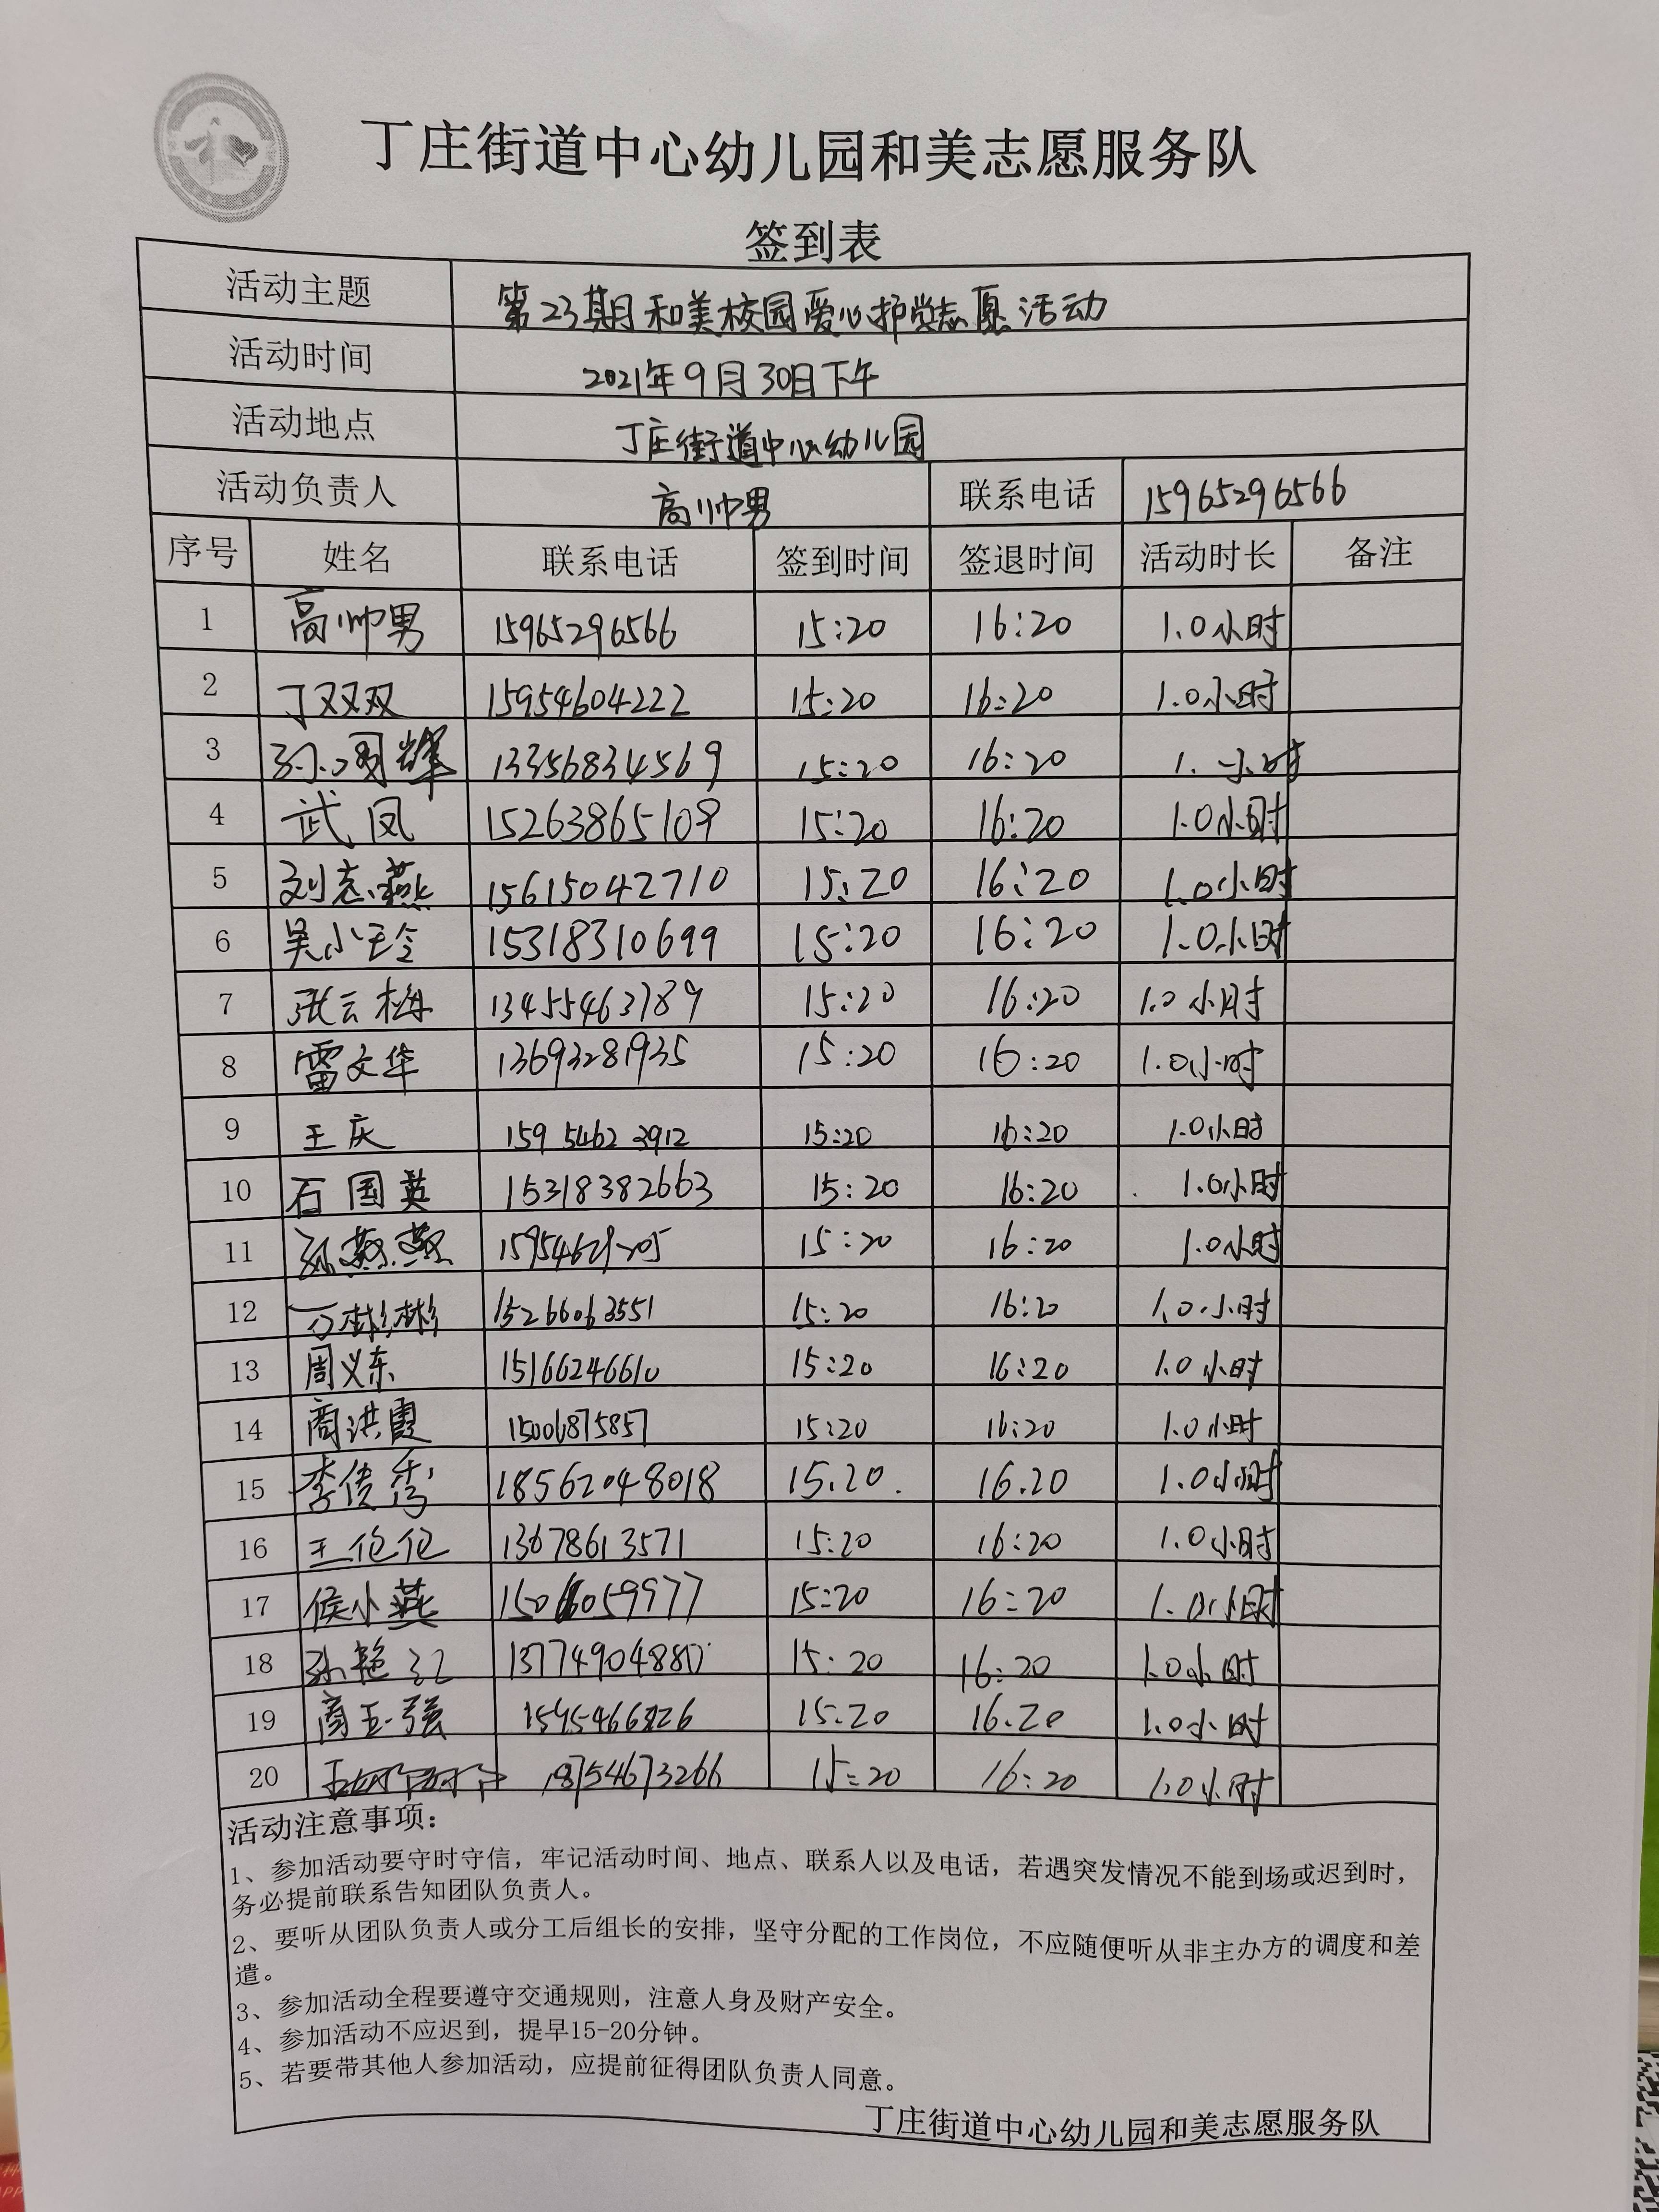 丁庄街道中心幼儿园和美志愿服务队
签到表
活动主题 第23期和美校园爱心护学志愿活动
活动时间 2021年9月30日下午
活动地点 丁庄街道中心幼儿园
活动负责人 高帅男 联系电话 15965296566
序号 姓名 联系电话 签到时间 签退时间 活动时长 备注
1 高帅男 15965296566 15:20 16:20 1.0小时
2 丁双双 15954604222 15:20 16:20 1.0小时
3 13356834569 15:20 16:20 1. 小时
4 武凤 15263865109 15:20 16:20 1.0小时
5 刘志燕 15615042710 15:20 16:20 1.0小时
6 吴小玲 15318310699 15:20 16:20 1.0小时
7 张云梅 13455463789 15:20 16:20 1.0小时
8 雷文华 13693281935 15:20 16:20 1.0小时
9 王庆 159 5462 3912 15:20 16:20 1.0小时
10 石国英 15318382663 15:20 16:20 1.0小时
11 孙燕燕 15:20 16:20 1.0小时
12 万彬彬 15266063551 15:20 16:20 1.0小时
13 周义东 15166246610 15:20 16:20 1.0小时
14 商洪霞 15006875857 15:20 16:20 1.0小时
15 李俊秀 18562048018 15.20. 16.20 1.0小时
16 王伦伦 13678613571 15:20 16:20 1.0小时
17 侯小燕 15:20 16:20 1.0小时
18 孙艳红 13774904880 15:20 16:20 1.0小时
19 商玉强 15:20 16.20 1.0小时
20 18754673266 15:20 16:20 1.0小时
活动注意事项：
1、参加活动要守时守信，牢记活动时间、地点、联系人以及电话，若遇突发情况不能到场或迟到时，
务必提前联系告知团队负责人。
2、要听从团队负责人或分工后组长的安排，坚守分配的工作岗位，不应随便听从非主办方的调度和差
遣。
3、参加活动全程要遵守交通规则，注意人身及财产安全。
4、参加活动不应迟到，提早15-20分钟。
5、若要带其他人参加活动，应提前征得团队负责人同意。
丁庄街道中心幼儿园和美志愿服务队